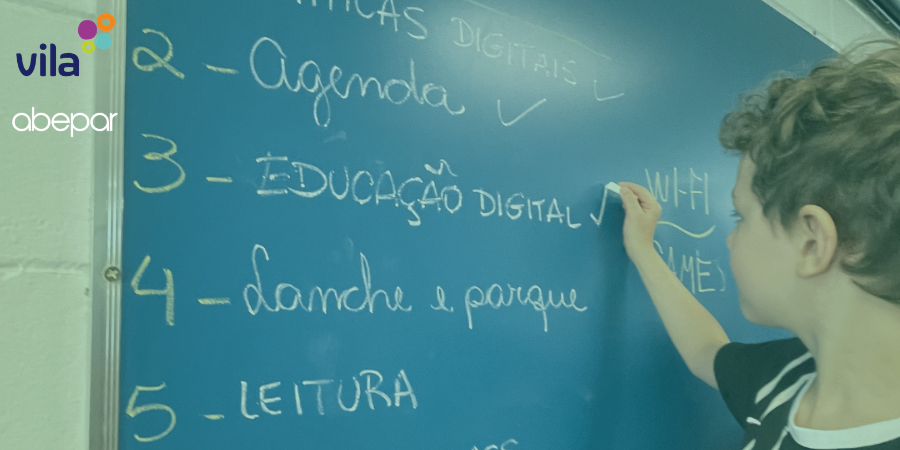 vila
abepar
DIGITAIS ✓
2 - Agenda ✓
3 - EDUCAÇÃO DIGITAL ✓
WI-FI
GAMES
4 - Lanche e parque
5 - LEITURA